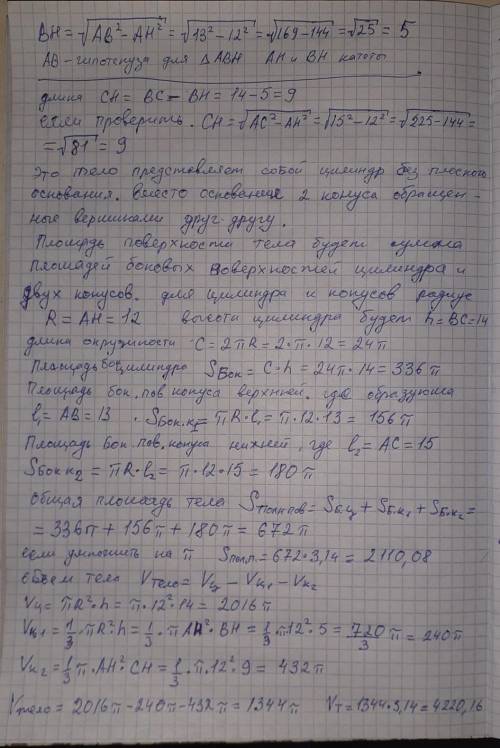 BH = √AB² - AH² = √13² - 12² = √169 - 144 = √25 = 5
AB - гипотенуза для ΔABH AH и BH катеты
длина CH = BC - BH = 14 - 5 = 9
если проверить. CH = √AC² - AH² = √15² - 12² = √225 - 144 =
= √81 = 9
Это тело представляет собой цилиндр без плоского
основания. Вместо основание 2 конуса обращен-
ные вершинами друг-другу.
Площадь поверхности тела будет сумма
площадей боковых поверхностей цилиндра и
двух конусов. для цилиндра и конусов радиус
R = AH = 12 высоты цилиндра будет h = BC = 14
длина окружности C = 2πR = 2·π·12 = 24π
Площадь бок цилиндра Sбок = C·h = 24π·14 = 336π
Площадь бок. пов конуса верхней. где образующа
l₁ = AB = 13. Sбок.к₁ = πR·l₁ = π·12·13 = 156π
Площадь бок. пов. конуса нижней, где l₂ = AC = 15
Sбок к₂ = πR·l₂ = π·12·15 = 180π
Общая площадь тела Sполн пов = Sб.ц + Sб.к₁ + Sб.к₂ =
= 336π + 156π + 180π = 672π
если умножить на π Sпол.п. = 672·3,14 = 2110,08
объем тела Vтело = Vц - Vк₁ - Vк₂
Vц = πR²·h = π·12²·14 = 2016π
Vк₁ = 1/3·πR²·h = 1/3·πAH²·BH = 1/3·π12²·5 = 720/3 π = 240π
Vк₂ = 1/3 π·AH²·CH = 1/3·π·12²·9 = 432π
Vтело = 2016π - 240π - 432π = 1344π Vт = 1344·3,14 = 4220,16